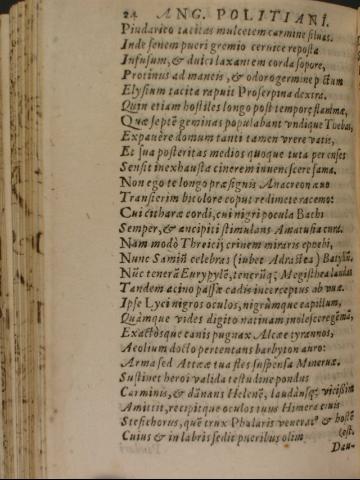 24 ANG. POLITIANI.
Pindarico tacitas mulcetem carmine siluas.
Inde senem pueri gremio ceruice reposta
Infusum, & dulci laxantem corda sopore,
Protinus ad maneis, & odoro germine pictum
Elysium tacita rapuit Proserpina dextra.
Quin etiam hostiles longo post tempore flammæ,
Quæ septē geminas populabant vndique Thebas,
Expauêre domum tanti tamen vrere vatis,
Et sua posteritas medios quoque tuta per enses
Sensit inexhausta cinerem iuuenescere fama.
Non ego te longo præsignis Anacreon æuo
Transierim bicolore coput redimete racemo:
Cui citharæ cordi, cui nigri pocula Bachi
Semper, & ancipiti stimulans Amatusia curâ.
Nam modò Threicij crinem miraris ephebi,
Nunc Samiū celebras (iubet Adrastea) Batyllū.
Nūc tenerū Eurypylū, tenerūq; Megisthea laudas
Tandem acino passæ cadis interceptus ab vuæ.
Ipse Lyci nigros oculos, nigrūmque capillum,
Quàmque vides digito natinam inolescere gēmā,
Exactòsque canis pugnax Alcæe tyrannos,
Aeolium docto pertentans barbyton auro:
Arma sed Atticæ tua flet suspensa Mineruæ.
Sustinet heroi valida testudine pondus
Carminis, & dānans Helenē, laudānsq; vicissim
Amittit, recipitque oculos tuus Himera ciuis
Stesichorus, quē trux Phalaris venerat⁹ & hostē
(est.
Cuius & in labris sedit pueribus olim
Dau-